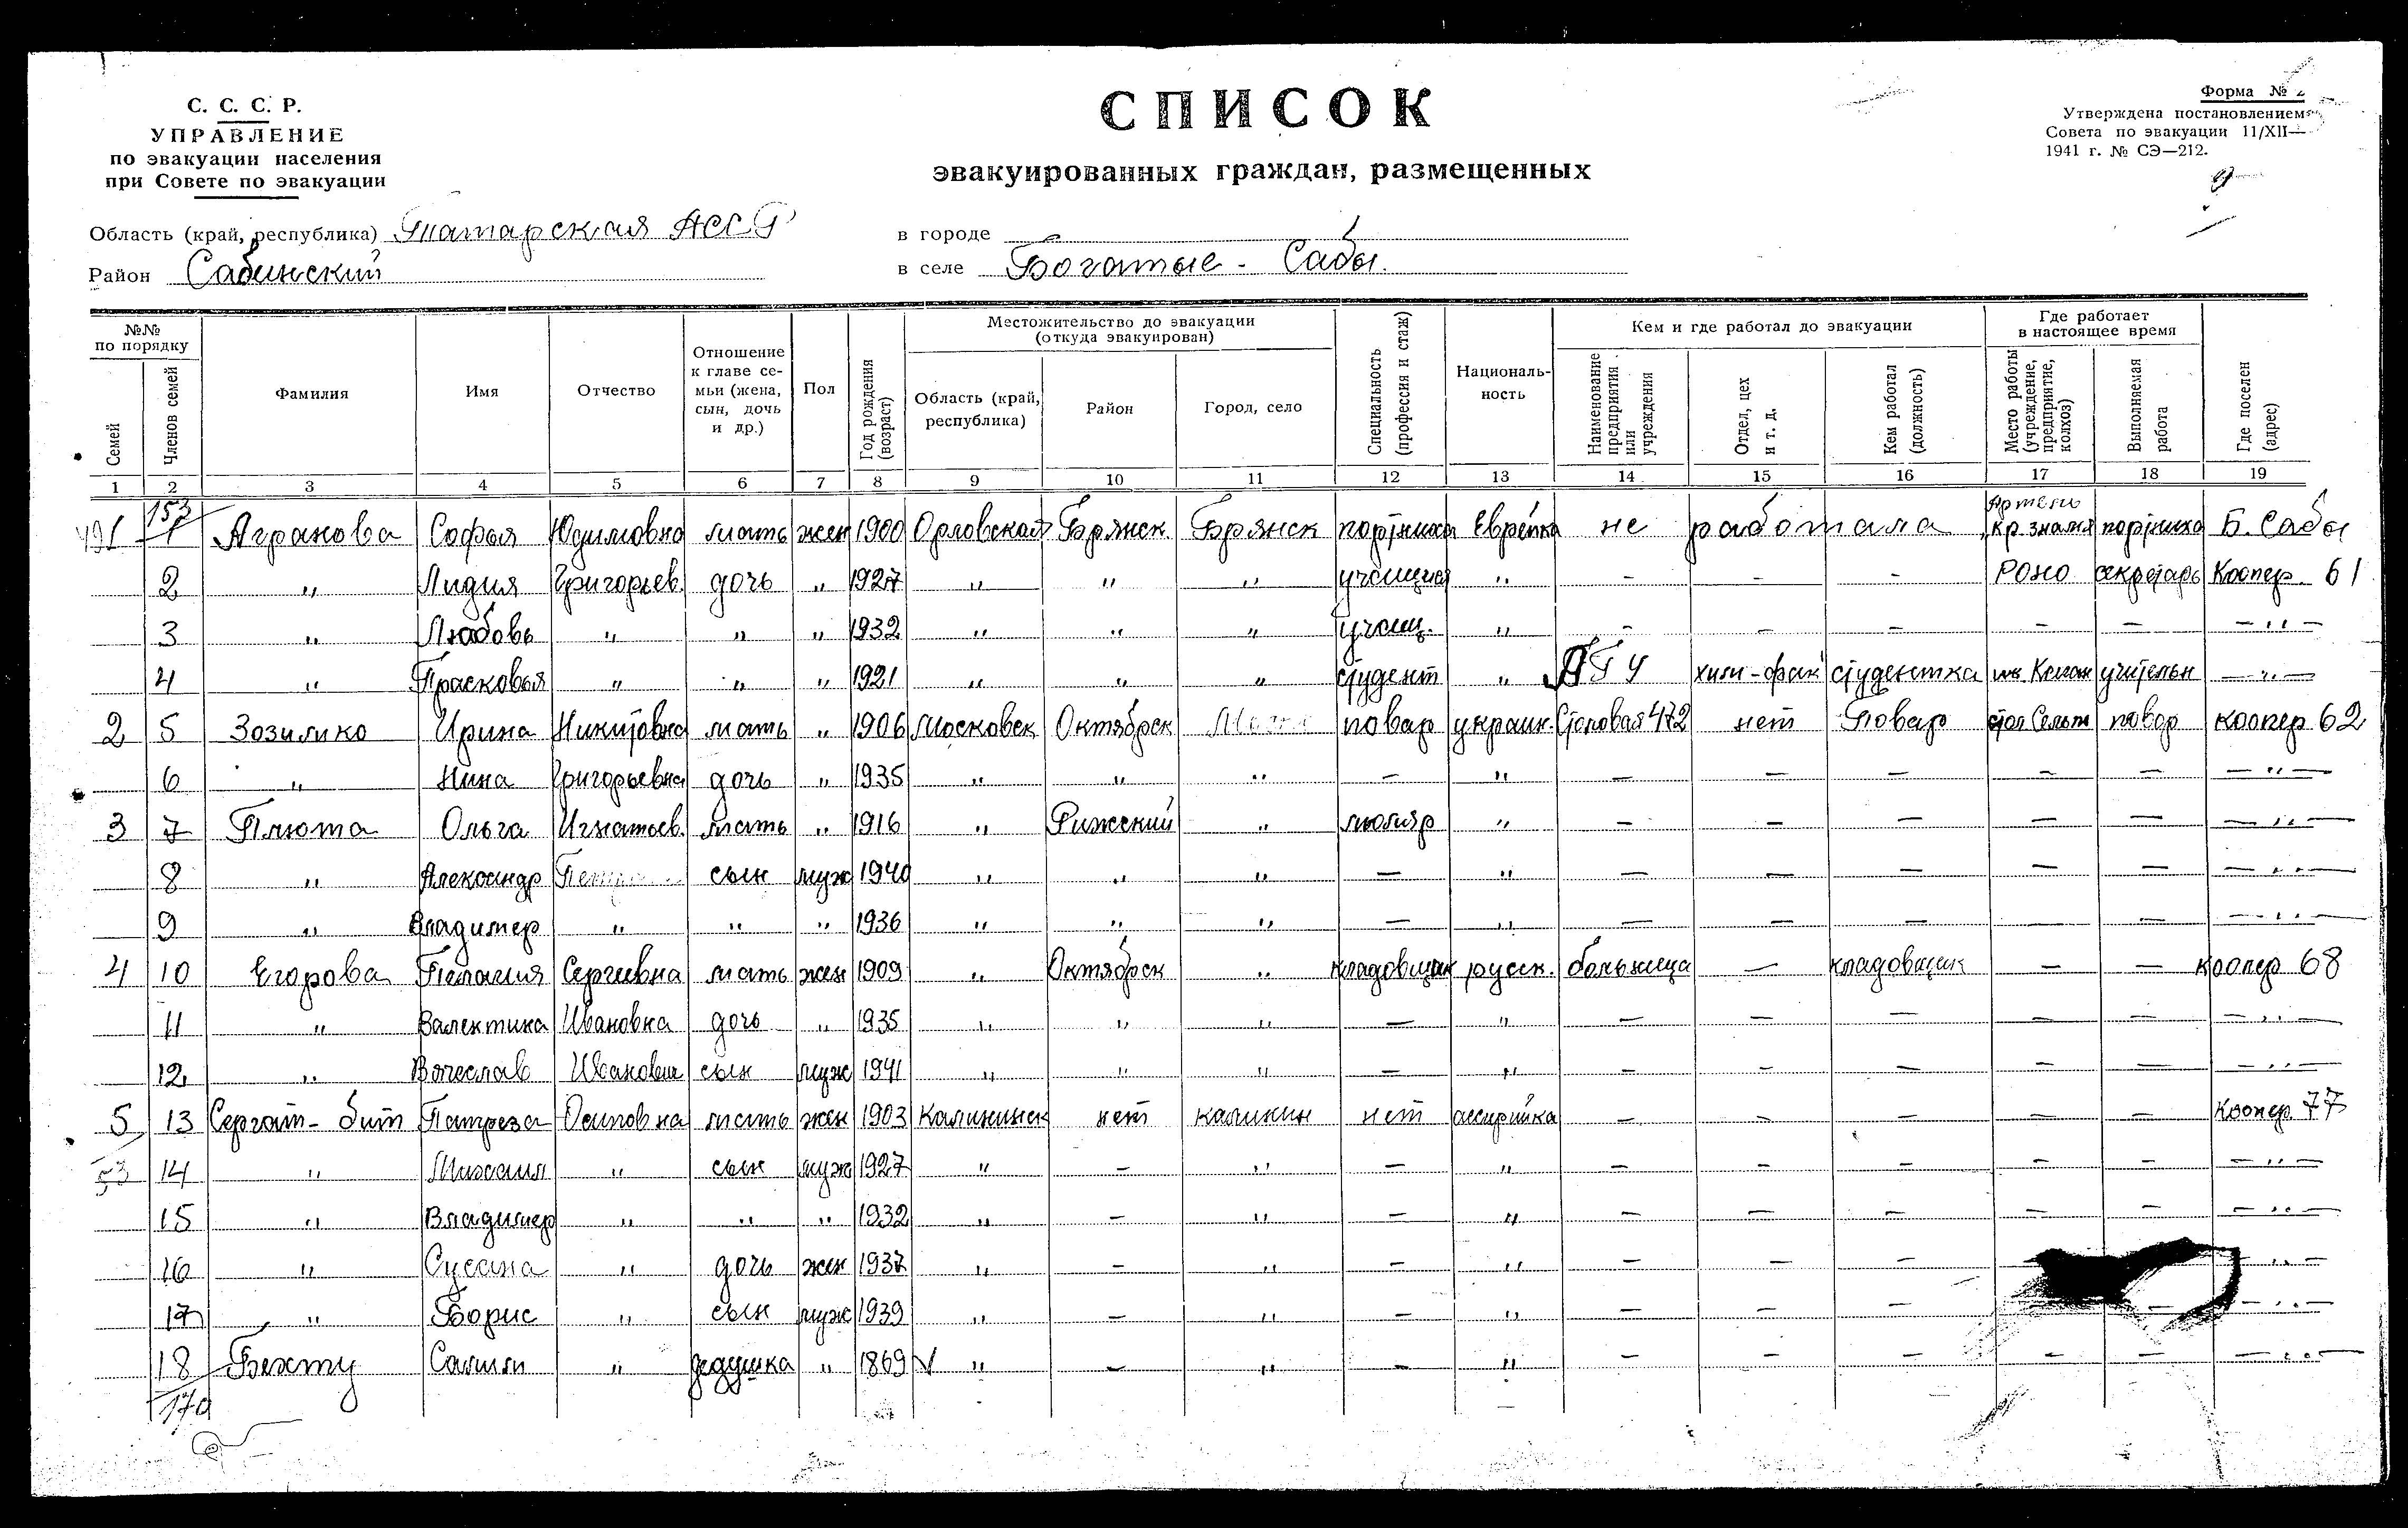 С. С. С. Р.
УПРАВЛЕНИЕ
по эвакуации населения
при Совете по эвакуации
СПИСОК
эвакуированных граждан, размещенных
Форма №
Утверждена постановлением
Совета по эвакуации 11/XII—
1941 г. № СЭ—212.
Область (край, республика) Татарская АССР
Район Сабинский
в городе
в селе Богатые - Сабы.
№№ по порядку
Семей
Членов семей
Фамилия
Имя
Отчество
Отношение к главе се- мьи (жена, сын, дочь и др.)
Пол
Год рождения (возраст)
Местожительство до эвакуации (откуда эвакуирован)
Область (край, республика)
Район
Город, село
Специальность (профессия и стаж)
Националь- ность
Кем и где работал до эвакуации
Наименование предприятия или учреждения
Отдел, цех и т. д.
Кем работал (должность)
Где работает в настоящее время
Место работы (учреждение, предприятие, колхоз)
Выполняемая работа
Где поселен (адрес)
1 2 3 4 5 6 7 8 9 10 11 12 13 14 15 16 17 18 19
153
1 Агранова Софья Юдимовна мать жен 1900 Орловская Брянск Брянск портниха Еврейка не работала Артель кр. знамя портниха Б. Сабы
2 " Лидия Григорьев. дочь " 1927 " " " учащаяся " - - - РОНО секретарь Коопер. 61
3 " Любовь " " " 1932 " " " учащ. " - - - - - - " -
4 " Прасковья " " " 1921 " " " студент " ЛГУ хим-фак студентка учительн - " -
2 5 Зозилико Ирина Никитовна мать " 1906 Московск Октябрск повар украин. Столовая 472 нет Повар повар коопер 62
6 " Нина Григорьевна дочь " 1935 " " " - " - - - - - - " -
3 7 Плюта Ольга Игнатьев. мать " 1916 " Рижский " моляр " - - - - - - " -
8 " Александр сын муж 1940 " " " - " - - - - - - " -
9 " Владимер " " " 1936 " " " - " - - - - - - " -
4 10 Егорова Пелагия Сергеевна мать жен 1909 " Октябрск " кладовщик русск. больница - кладовщик - - коопер 68
11 " Валентина Ивановна дочь " 1935 " " " - " - - - - - - " -
12 " Вячеслав Иванович сын муж 1941 " " " - " - - - - - - " -
5 13 Сергат - бит Патреза Осиповна мать жен 1903 Калининск нет калинин нет ассирийка - - - - - Коопер. 77
53 14 " Михаил " сын муж 1927 " - " - " - - - - - - " -
15 " Владимер " " " 1932 " - " - " - - - - - - " -
16 " Сусана " дочь жен 1937 " - " - " - - - "
17 " Борис " сын муж 1939 " - " - " - - - - - " -
18 Бехту Салим " дедушка " 1869 " - " - " - - - - - - " -
170